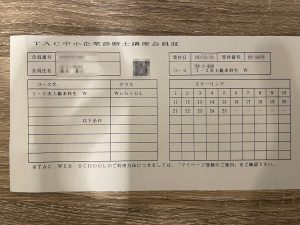 TAC中小企業診断士講座会員証
会員番号
会員氏名
受付日
受付番号
コース 1・2次上級本科生 W
コース名 クラス
1・2次上級本科生 W Web+DL
以下余白
スクーリング
1 2 3 4 5 6 7 8 9 10
11 12 13 14 15 16 17 18 19 20
21 22 23 24 25
※TAC WEB SCHOOLのご利用方法につきましては、「マイページ登録のご案内」をご確認下さい。